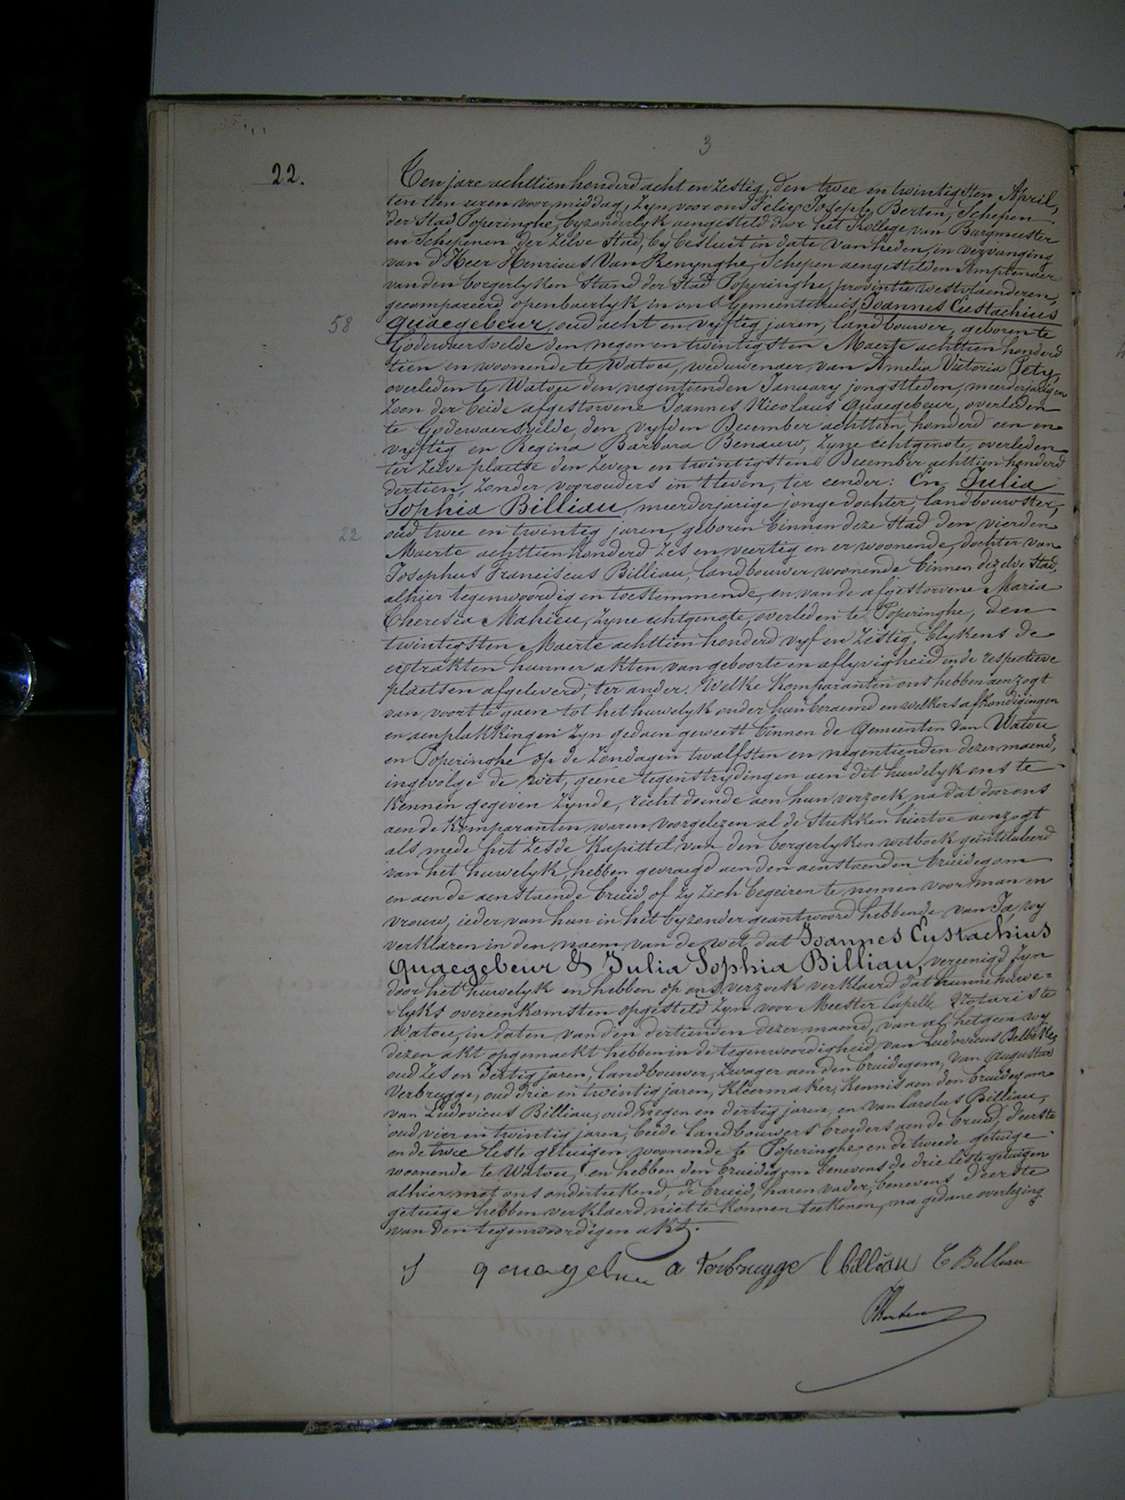 3
22.
Ten jare achttien honderd acht en zestig, den twee en twintigsten April,
ten tien uren voormiddag, zyn voor ons Felix Joseph Berten, Schepen
der Stad Poperinghe, byzonderlyk aengesteld door het Kollegie van Burgmeester
en Schepenen der zelve Stad, by besluit in date van heden, in vervanging
van d'Heer Henricus Van Renynghe, Schepen aengestelden Amptenaer
van den borgerlyken Stand der Stad Poperinghe, provintie westvlaenderen,
gecompareerd openbaerlyk in ons Gemeentehuis, Joannes Eustachius
58 Quaegebeur, oud acht en vyftig jaren, landbouwer, geboren te
Godewaersvelde den negen en twintigsten Maerte achttien honderd
tien en woonende te Watou, weduwenaer van Amelia Victoria Pety,
overleden te Watou den negentienden January jongstleden, meerderjarigen
zoon der beide afgestorvene Joannes Nicolaus Quaegebeur, overleden
te Godewaersvelde, den vyfden December achttien honderd een en
vyftig en Regina Barbara Benauw, zyne echtgenote, overleden
ter zelve plaetse den zeven en twintigsten December achttien honderd
dertien, zonder voorouders in t'leven, ter eender: En Julia
Sophia Billiau, meerderjarige jonge dochter, landbouwster,
22 oud twee en twintig jaren, geboren binnen deze Stad den vierden
Maerte achttien honderd zes en veertig en er woonende, dochter van
Josephus Franciscus Billiau, landbouwer woonende binnen dezelve Stad,
alhier tegenwoordig en toestemmende, en van de afgestorvene Maria
Theresia Mahieu, zyne echtgenote, overleden te Poperinghe, den
twintigsten Maerte achttien honderd vyf en zestig, blykens de
extrakten hunner akten van geboorte en aflyvigheid in de respectieve
plaetsen afgeleverd, ter ander. Welke komparanten ons hebben aenzogt
van voort te gaen tot het huwelyk onder hun beraemd en welkers afkondigingen
en aenplakkingen zyn gedaen geweest binnen de Gemeenten van Watou
en Poperinghe op de Zondagen twalfsten en negentienden dezer maend,
ingevolge de wet, geene tegenstrydingen aen dit huwelyk ons te
kennen gegeven zynde, recht doende aen hun verzoek, na dat door ons
aen de komparanten waren voorgelezen al de Stukken hiertoe aenzogt
als mede het zesde Kapittel van den borgerlyken wetboek geintituleerd
van het huwelyk, hebben gevraegd aen den aenstaenden bruidegom
en aen de aenstaende bruid, of zy zich begeiren te nemen voor man en
vrouw, ieder van hun in het byzonder geantwoord hebbende van Ja, wy
verklaren in den naem van de wet, dat Joannes Eustachius
Quaegebeur & Julia Sophia Billiau, vereenigd zyn
door het huwelyk en hebben op ons verzoek verklaerd dat hunne huwe-
lyks overeenkomsten opgesteld zyn voor Meester Capelle Notaris te
Watou, in daten van den dertienden dezer maend, van al hetgeen wy
dezen akt opgemaekt hebben in de tegenwoordigheid van Ludovicus
oud zes en dertig jaren, landbouwer, zwager aen den bruidegom, van Augustus
Verbrugge, oud drie en twintig jaren, kleermaker, kennis aen den bruidegom
van Ludovicus Billiau, oud negen en dertig jaren, en van Carolus Billiau,
oud vier en twintig jaren, beide landbouwers broeders aen de bruid, d'eerste
en de twee leste getuigen woonende te Poperinghe, en de tweede getuige
woonende te Watou, en hebben den bruidegom benevens de drie leste getuigen
alhier met ons onderteekend, de bruid, haren vader, benevens d'eerste
getuige hebben verklaerd niet te konnen teekenen, na gedane overlezing
van den tegenwoordigen akt.
J quaegebeur a Verbrugge l billiau C Billiau
Berten